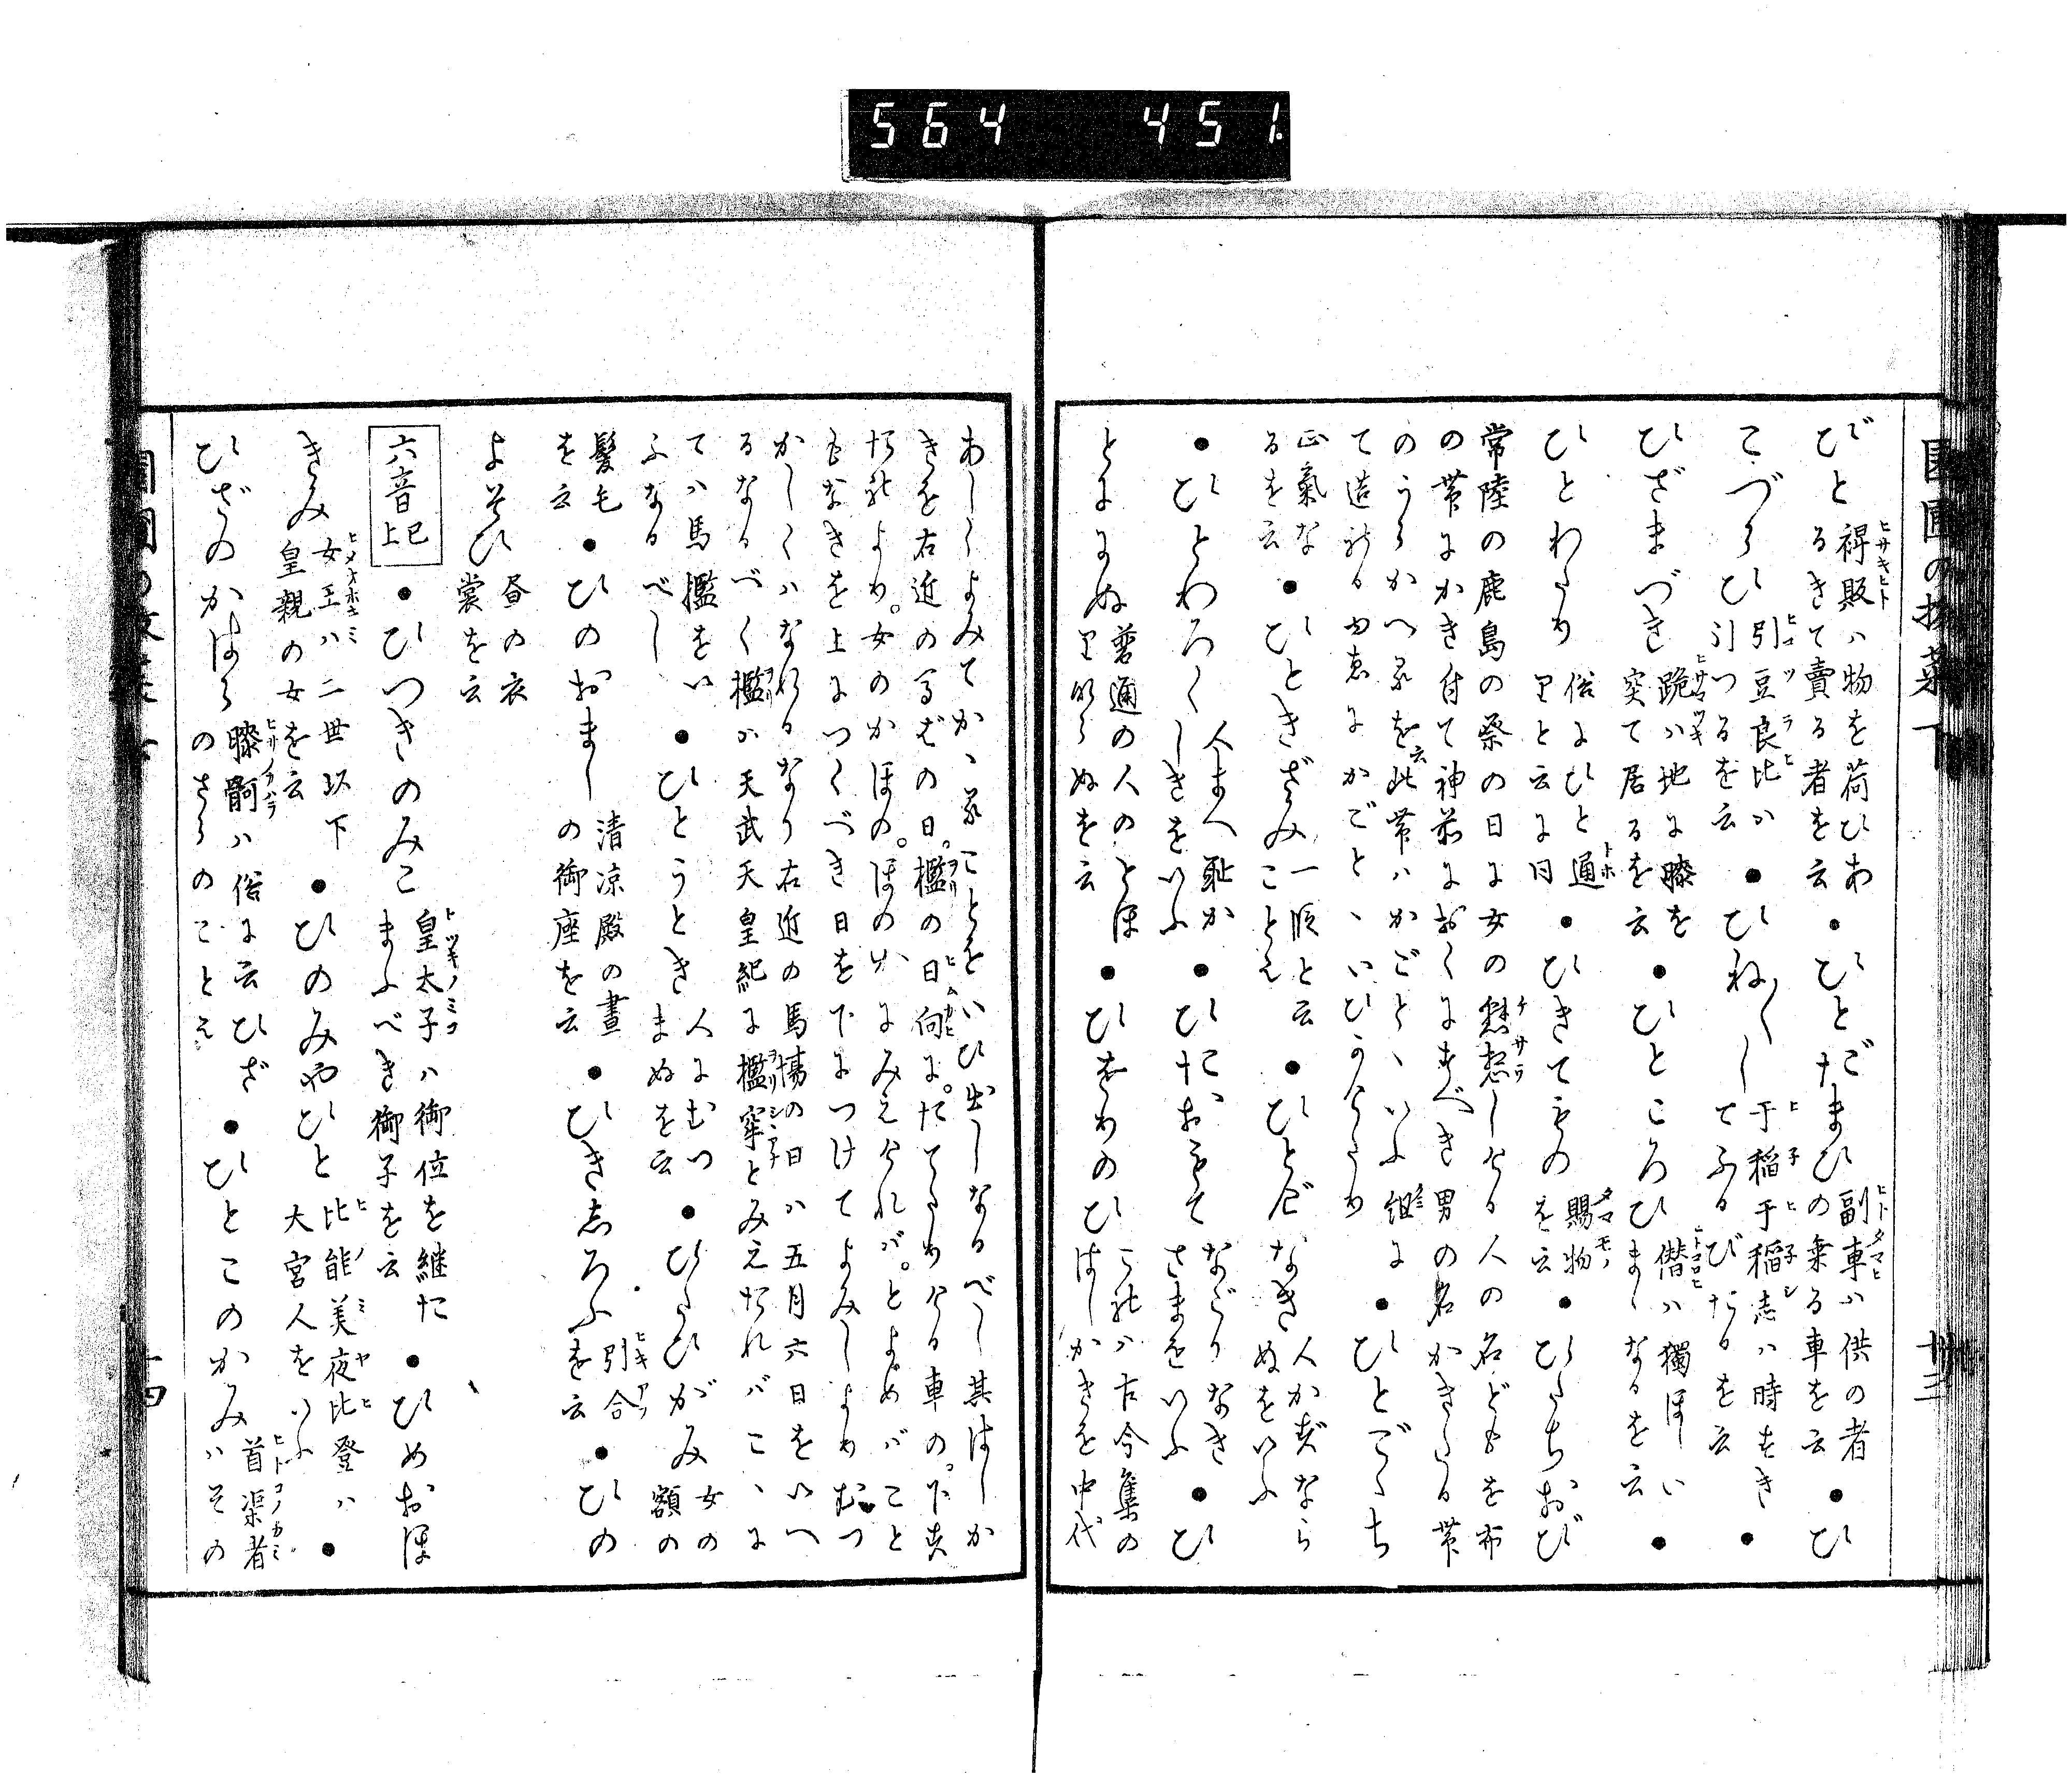 564 451
びと 裨販ハ物を荷ひあ
るきて賣る者を云 ●ひとだまひ 副車ハ供の者
の乗る車を云 ●ひ
こづらひ 引豆良比ハ
引つるを云 ●ひね〳〵し 于稲于稲志ハ時すぎ
てふるびたるを云 ●
ひざまづき 跪ハ地に膝を
突て居るを云 ●ひところひ 僭ハ獨ほしい
まゝなるを云 ●
ひとわたり 俗にひと通
りと云に同 ●ひきでもの 賜物
を云 ●ひたちおび
常陸の鹿島の祭の日に女の懸想しける人の名どもを布
の帯にかき付て神前におくにすべき男の名かきたる帯
のうらかへるを云此帯ハかごとゝいふ組に
て造れるゆゑにかごとゝいひかけたり ●ひとごゝち
正氣な
るを云 ●ひときざみ 一段と云
ことえ ●ひとげなき 人かずなら
ぬをいふ
●ひとわろくしき 人まへ恥か
しきをいふ ●ひたおもて なごりなき
さまをいふ ●ひ
とにゝぬ 普通の人のとほ
りならぬを云 ●ひをりのひ これハ古今集の
はしがきを中代
あしくよみてかゝることをいひ出しなるべし其はしが
きを右近のうまばの日檻の日向に。たてたりける車の。下す
だれより。女のかほの。ほのかにみえければ。とよめばこと
もなきを上につくべき日を下につけてよみしよりむつ
かしくハなれるなり右近の馬場の日ハ五月六日をいへ
るなるべく檻ハ天武天皇紀に檻穽とみえたればこゝに
てハ馬檻をい
ふなるべし ●ひとうとき 人にむつ
まぬを云 ●ひたひがみ 女の
額の
髪毛
を云 ●ひのおまし 清凉殿の晝
の御座を云 ●ひきしろふ 引合
を云 ●ひの
よそひ 昼の衣
裳を云
六音 巳上 ●ひつきのみこ 皇太子ハ御位を継た
まふべき御子を云 ●ひめおほ
きみ 女王ハ二世以下
皇親の女を云 ●ひのみやびと 比能美夜比登ハ
大宮人をいふ ●
ひざのかはら 膝骬ハ俗に云ひざ
のさらのことえ ●ひとこのかみ 首渠者
ハその